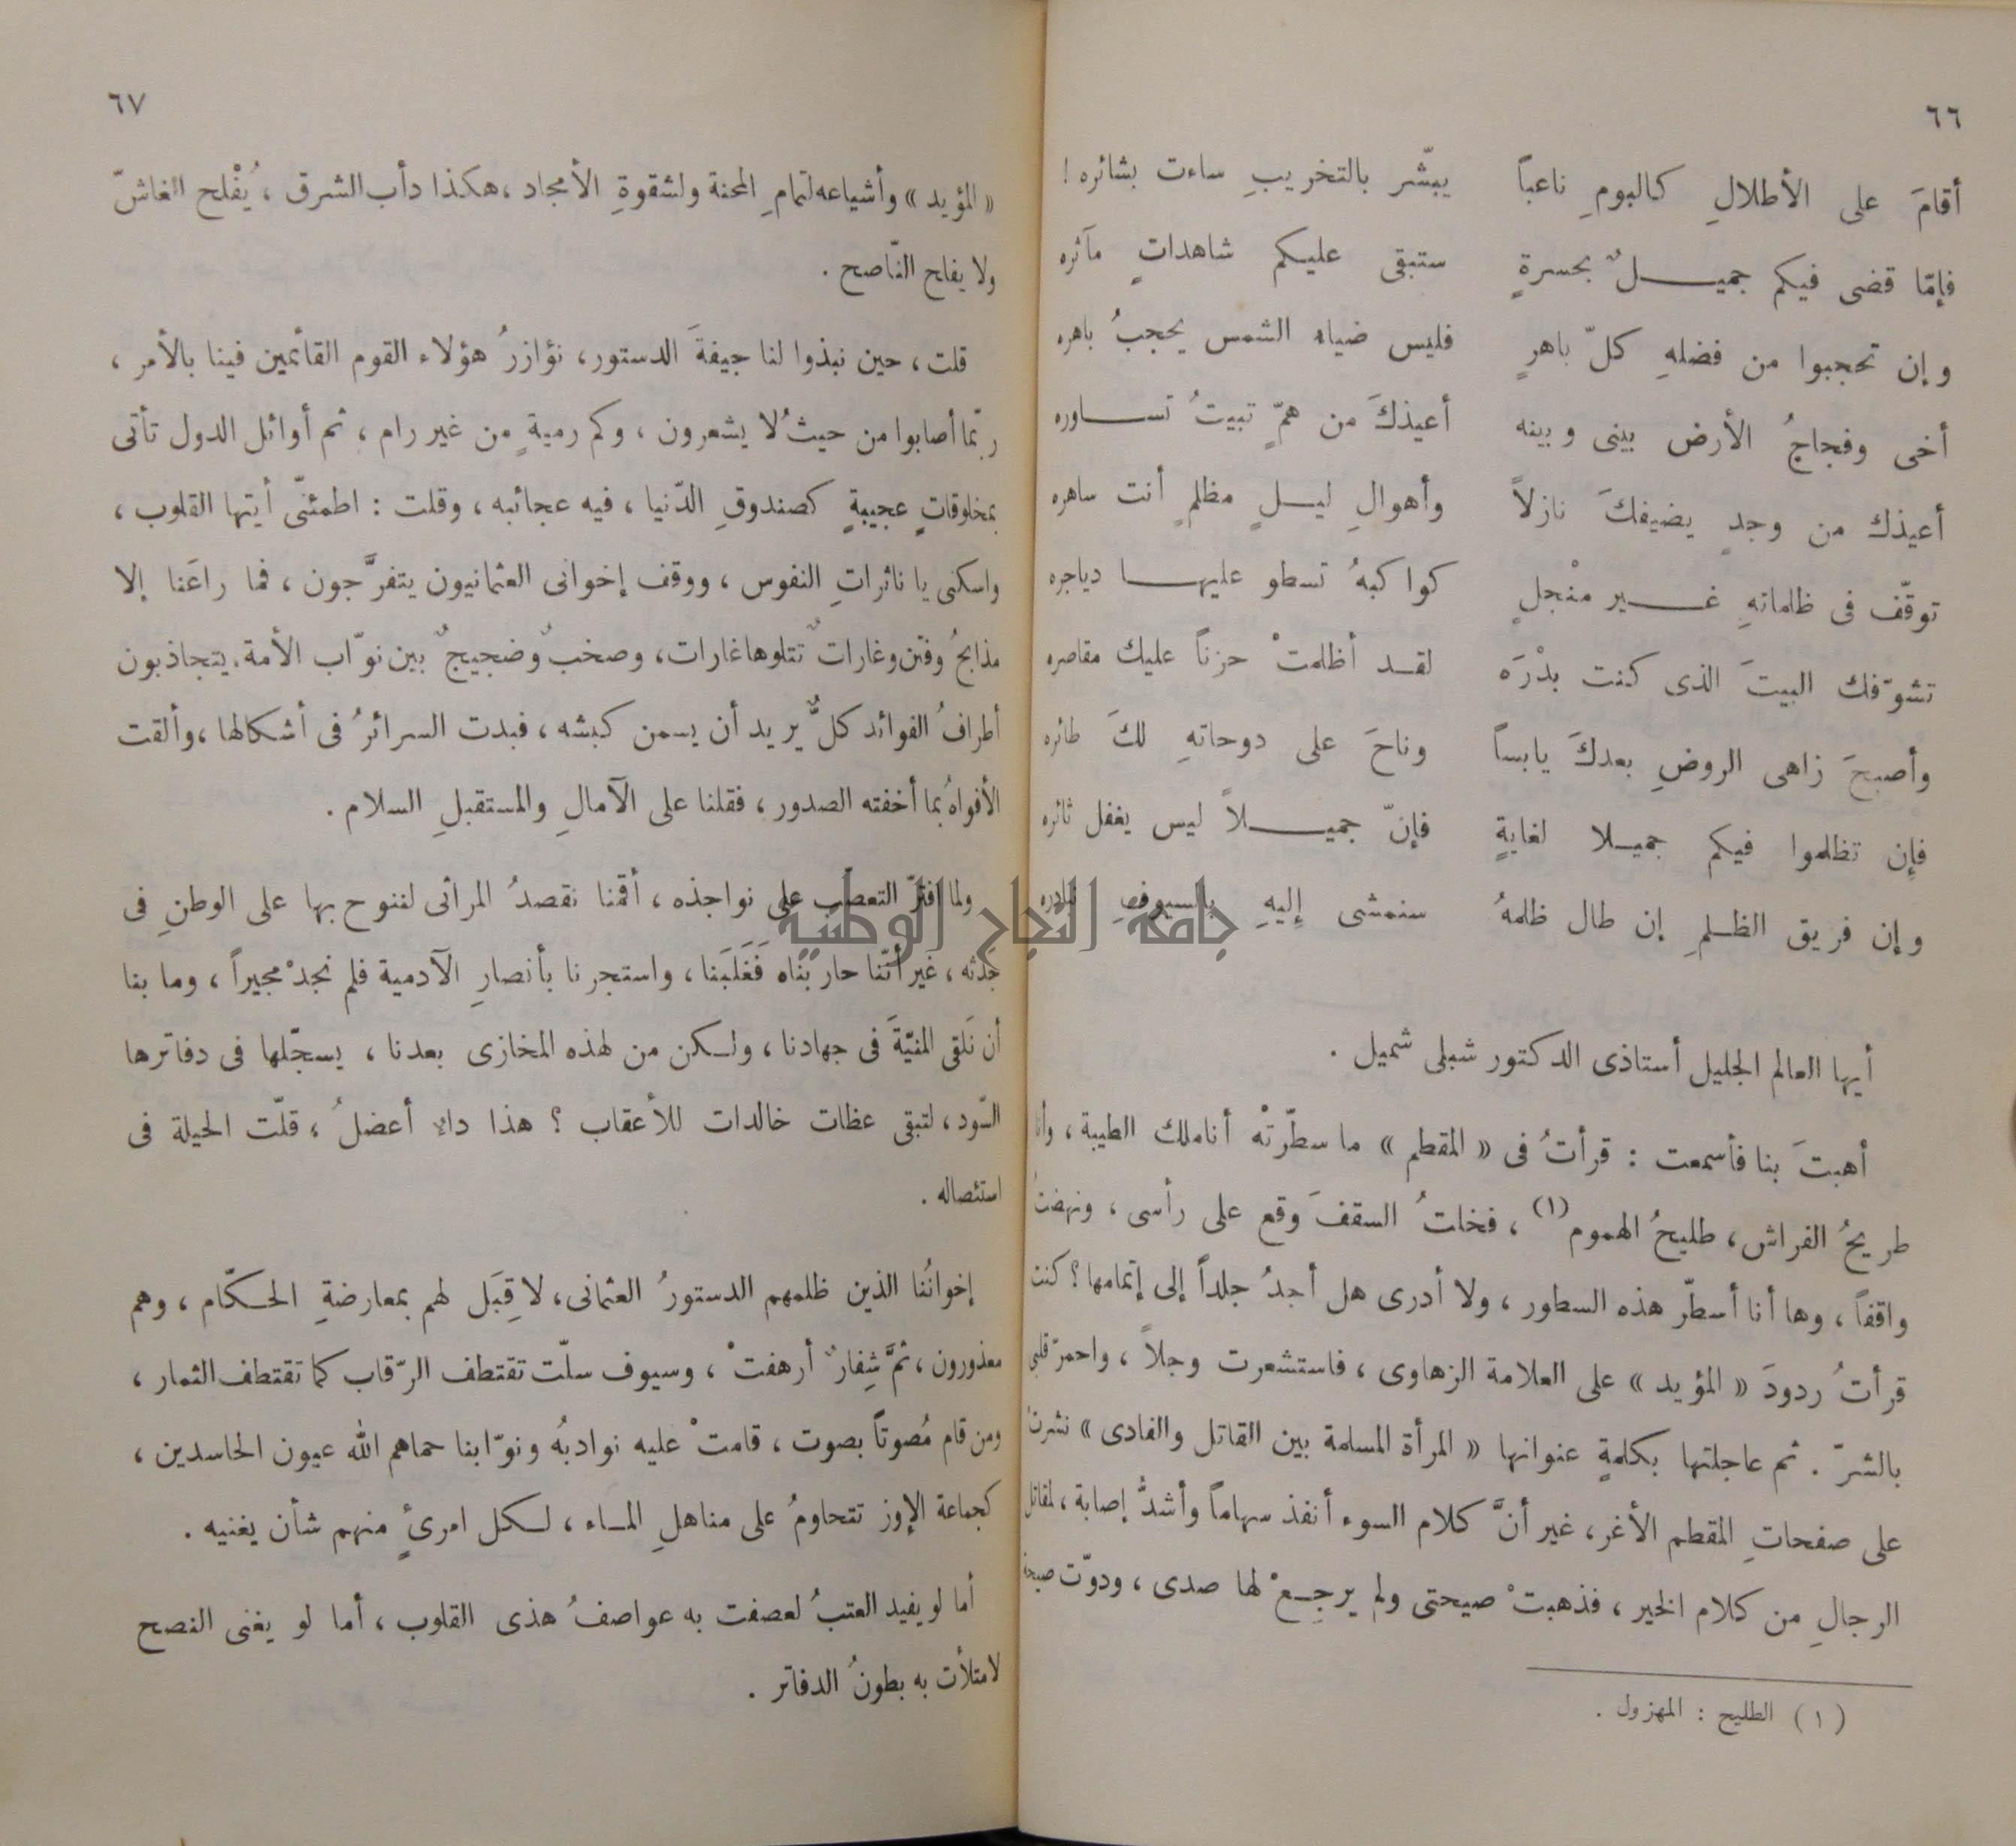 ٦٦
أقامَ على الأطلالِ كالبومِ ناعباً يبشّر بالتخريبِ ساءت بشائره !
فإمّا قضى فيكم جميـــلٌ بحسرةٍ ستبقى عليكم شاهداتٍ مآثره
وإن تحجبوا من فضلهِ كلّ باهرٍ فليس ضياء الشمس يحجبُ باهره
أخى وفجاجُ الأرض بينى وبينه أعيذكَ من همّ تبيتُ تســاوره
أعيذك من وجدٍ يضيفكَ نازلاً وأهوالِ ليــلٍ مظلمٍ أنت ساهره
توقّف فى ظلمائهِ غــير منْجلٍ كواكبهُ تسطو عليهــا دياجره
تشوّفك البيتَ الذى كنت بدْرَه لقـد أظلمتْ حزناً عليك مقاصره
وأصبحَ زاهى الروضِ بعدكَ يابساً وناحَ على دوحاتهِ لكَ طائره
فإن تظلموا فيكم جميـلا لغايةٍ فإنّ جميــلاً ليس يغفل ثائره
وإن فريق الظـلمِ إن طال ظلمهُ سنمشى إليهِ بالسيوفِ نبادره
أيها العالم الجليل أستاذى الدكتور شبلى شميل .
أهبتَ بنا فأسمعت : قرأتُ فى « المقطم » ما سطّرتْه أناملك الطيبة ، وأنا
طريحُ الفراش ، طليحُ الهموم (١) ، فخلتُ السقفَ وقع على رأسى ، ونهضتُ
واقفاً ، وها أنا أسطّر هذه السطور ، ولا أدرى هل أجدُ جلداً إلى إتمامها ؟ كنت
قرأتُ ردودَ « المؤيد » على العلامة الزهاوى ، فاستشعرت وجلاً ، واحمرّ قلبى
بالشرّ . ثم عاجلتها بكلمةٍ عنوانها « المرأة المسلمة بين القاتل والفادى » نشرت
على صفحاتِ المقطم الأغر ، غير أنَّ كلام السوء أنفذ سهاماً وأشدُّ إصابة ، لمقاتل
الرجالِ من كلام الخير ، فذهبتْ صيحتى ولم يرجـعْ لها صدى ، ودوّت صيحة
( ١ ) الطليح : المهزول .
٦٧
« المؤيد » وأشياعه لتمامِ المحنة ولشقوةِ الأمجاد ، هكذا دأب الشرق ، يُفْلح الغاشّ
ولا يفلح النّاصح .
قلت ، حين نبذوا لنا جيفةَ الدستور ، نؤازرُ هؤلاء القوم القائمين فينا بالأمر ،
ربّما أصابوا من حيثُ لا يشعرون ، وكم رميةٍ من غير رام ، ثم أوائل الدول تأتى
بمخلوقاتٍ عجيبةٍ كصندوقِ الدّنيا ، فيه عجائبه ، وقلت : اطمئنّى أيتها القلوب ،
واسكنى يا نائراتِ النفوس ، ووقف إخوانى العثمانيون يتفرَّجون ، فما راعَنا إلا
مذابحُ وفتن وغاراتٌ تتلوها غارات ، وصخبٌ وضجيجٌ بين نوّاب الأمة . يتجاذبون
أطرافُ الفوائد كلٌّ يريد أن يسمن كبشه ، فبدت السرائرُ فى أشكالها ، وألقت
الأفواهُ بما أخفته الصدور ، فقلنا على الآمالِ والمستقبلِ السلام .
ولما افترّ التعصّب على نواجذه ، أقمنا نقصدُ المراثى لننوح بها على الوطنِ فى
جدثه ، غير أنّنا حاربناه فَغَلَبَنا ، واستجرنا بأنصارِ الآدمية فلم نجدْ مجيراً ، وما بنا
أن نَلقى المنيّةَ فى جهادنا ، ولـكن من لهذه المخازى بعدنا ، يسجّلها فى دفاترها
السّود ، لتبقى عظات خالدات للأعقاب ؟ هذا داء أعضلُ ، قلّت الحيلة فى
استئصاله .
إخوانُنا الذين ظلمهم الدستورُ العثمانى ، لا قِبَل لهم بمعارضةِ الحـكّام ، وهم
معذورون ، ثمَّ شِفارٌ أرهفتْ ، وسيوف سلّت تقتطف الرّقاب كما تقتطف الثمار ،
ومن قام مُصوتاً بصوت ، قامتْ عليه نوادبهُ ونوّابنا حماهم الله عيون الحاسدين ،
كجماعة الإوز تتحاومُ على مناهلِ المـاء ، لـكل امرئٍ منهم شأن يغنيه .
أما لو يفيد العتبُ لعصفت به عواصفُ هذى القلوب ، أما لو يغنى النصح
لامتلأت به بطونُ الدفاتر .
جامعة النجاح الوطنية